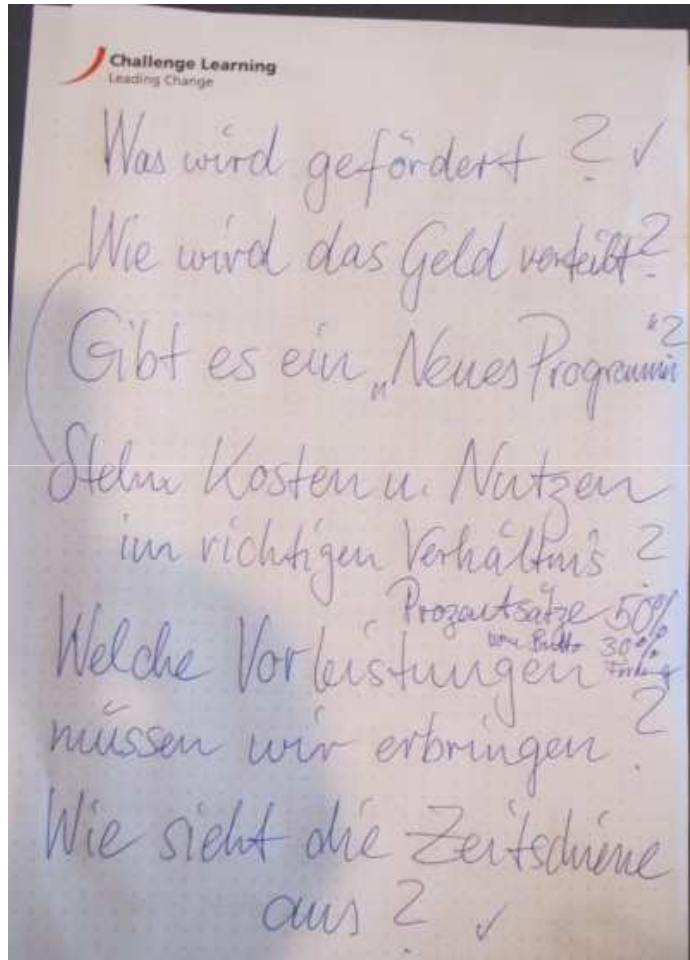 Challenge Learning
Leading Change
Was wird gefördert ? ✓
Wie wird das Geld verteilt?
Gibt es ein „Neues Programm“?
Stehn Kosten u. Nutzen
im richtigen Verhältnis ?
Prozentsätze 50%
von Brutto 30%
Welche Vorleistungen
müssen wir erbringen ?
Wie sieht die Zeitschiene
aus ? ✓